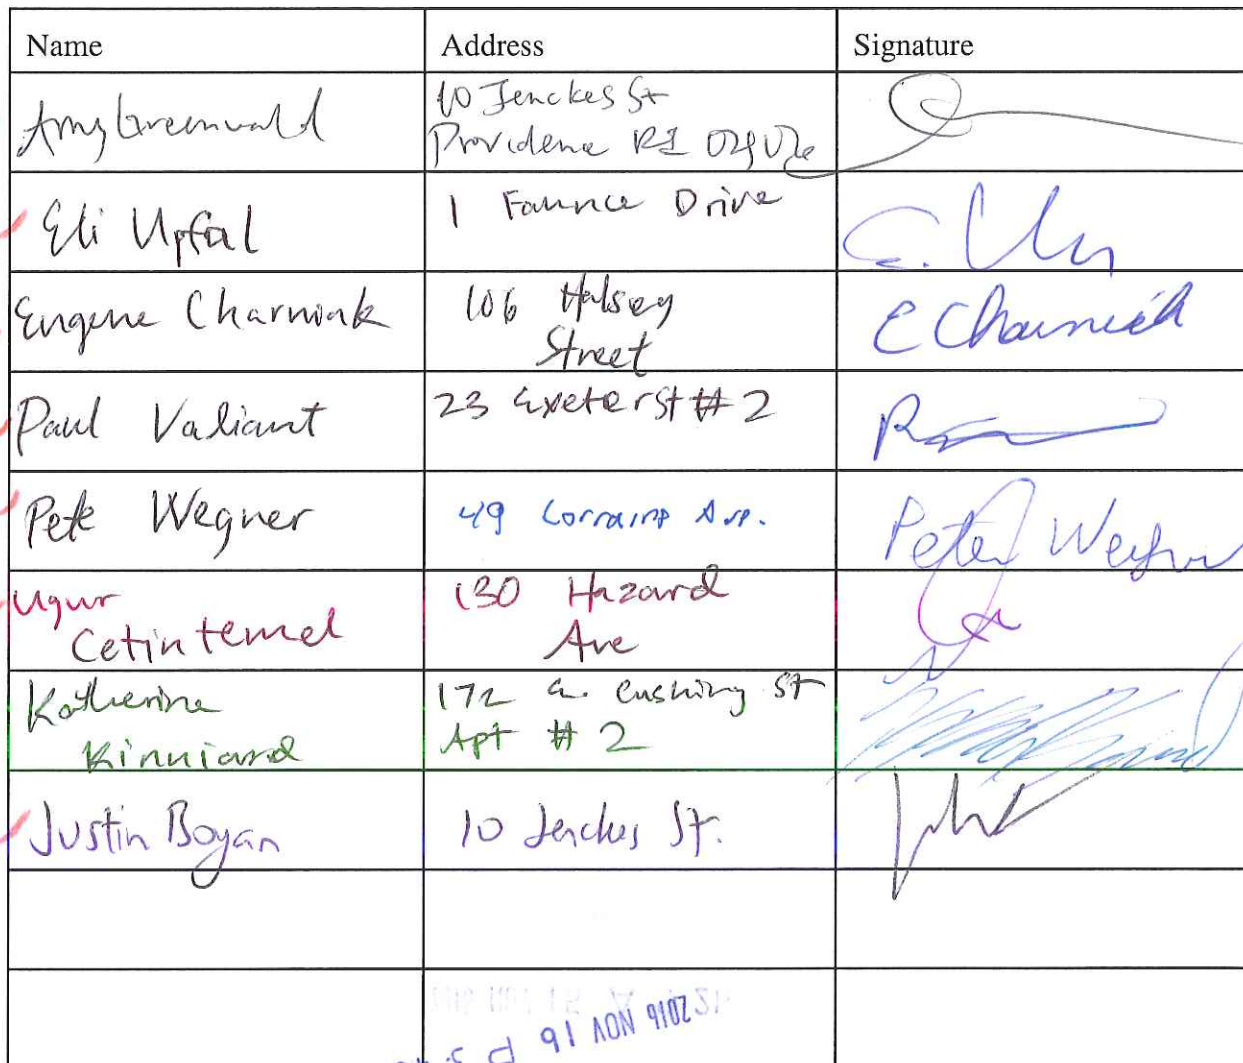 Name Address Signature
Amy Greenwald 10 Jenckes St
Providence RI
Eli Upfal 1 Faunce Drive
Eugene Charniak 106 Halsey
Street E Charniak
Paul Valiant 23 Exeter St # 2
Pete Wegner 49 Lorraine Ave. Peter Wegner
Ugur
Cetintemel 130 Hazard
Ave
Katherine
Kinniard 172 Cushing St
Apt # 2
Justin Boyan 10 Jenckes St.
2016 NOV 16 P